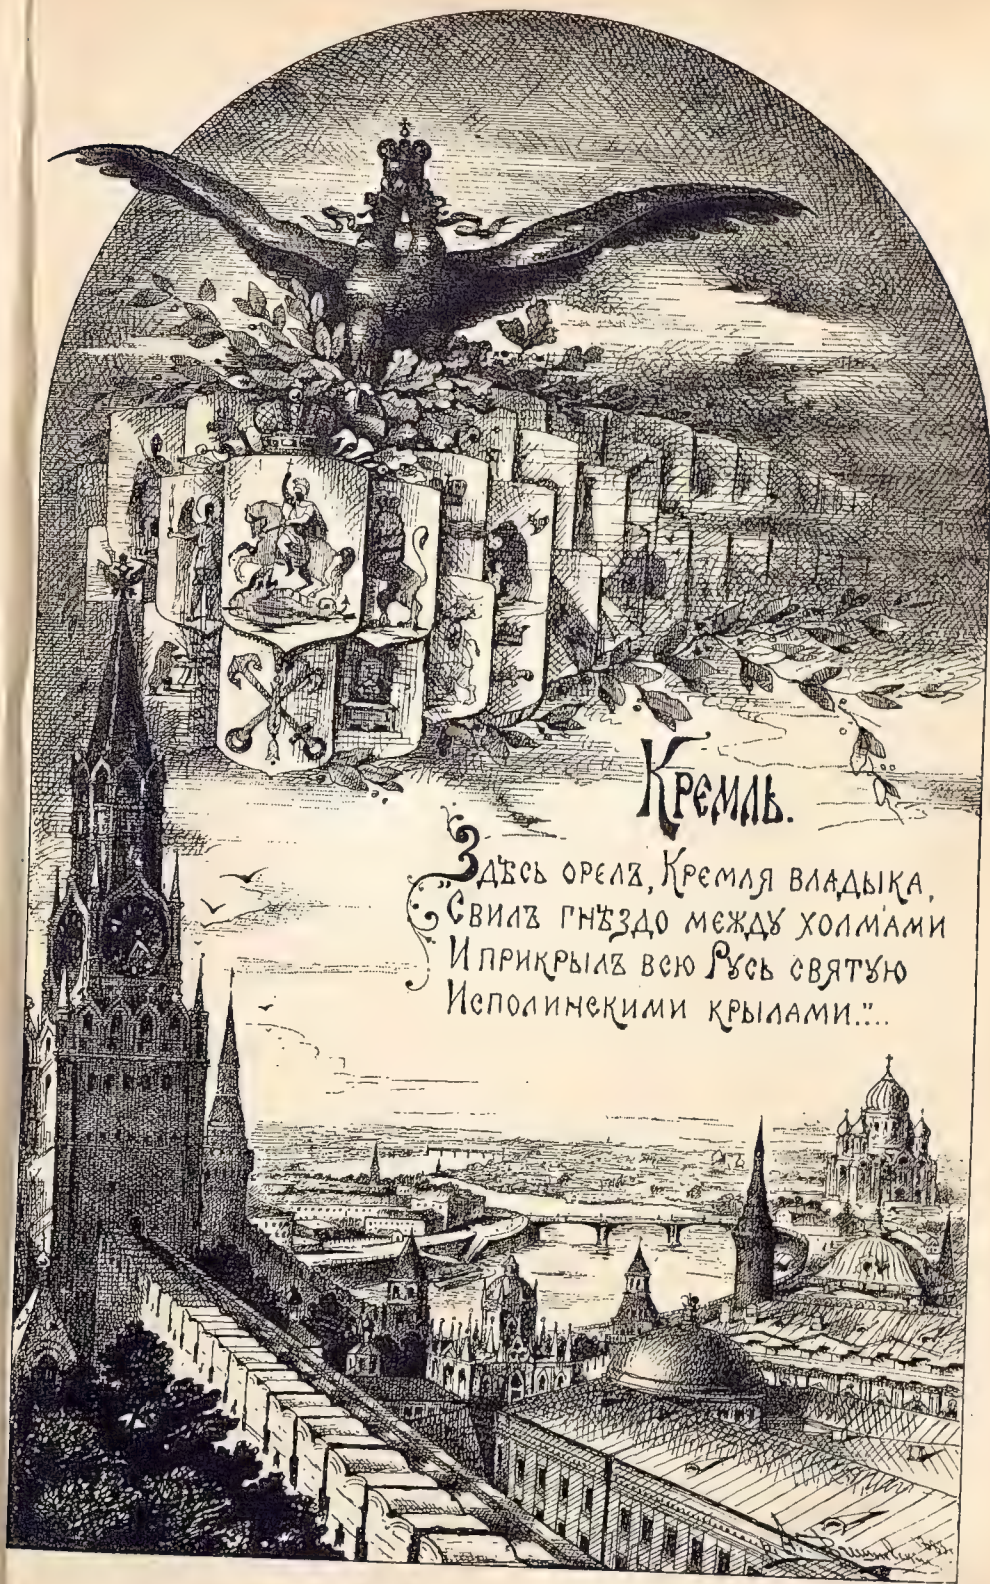 Кремль.
Здѣсь орелъ, Кремля владыка,
Свилъ гнѣздо между холмами
И прикрылъ всю Русь святую
Исполинскими крылами."...